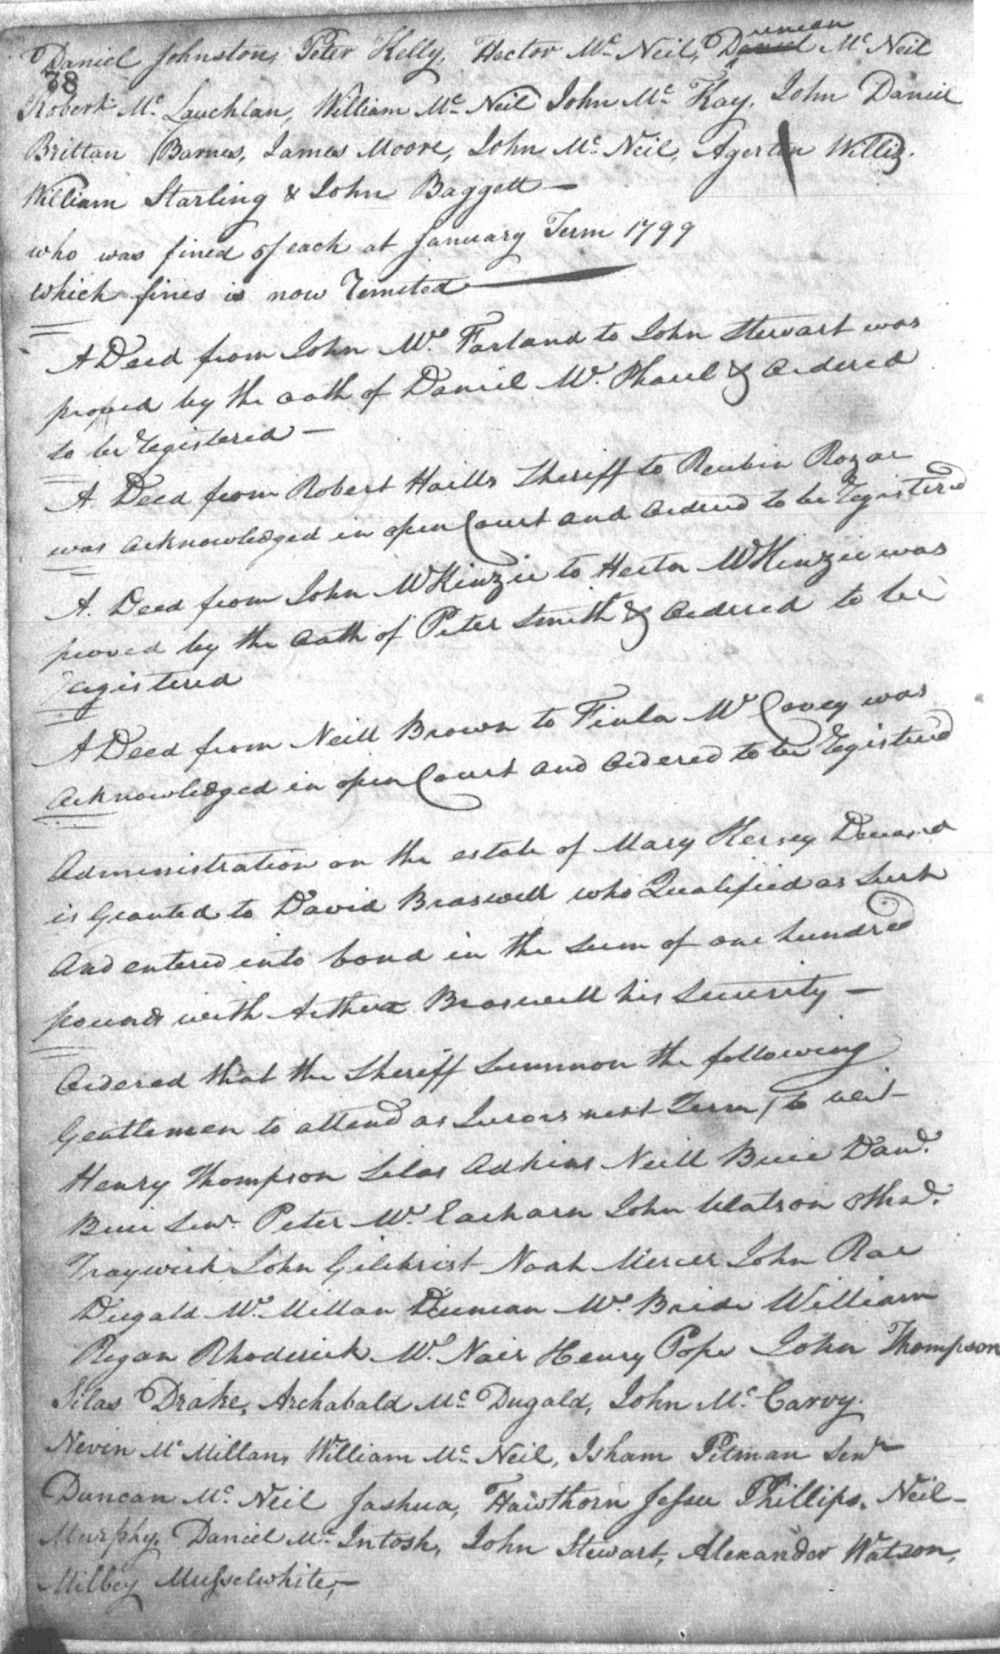 Daniel Johnston, Peter Kelly, Hector Mc Neil, Duncan Mc Neil
38
Robert Mc Lauchlan, William Mc Neil John Mc Kay, John Daniel
Brittan Barnes, James Moore, John Mc Neil, Agerton Willis.
William Starling & John Baggett —
who was fined of each at January Term 1799
which fines is now remited
A Deed from John Mc Farland to John Stewart was
proved by the oath of Daniel Mc Phaul & ordered
to be registered —
A Deed from Robert Hails Sheriff to Reubin Rozar
was acknowledged in open Court and ordered to be registered
A Deed from John McKinzie to Hector McKinzie was
proved by the oath of Peter Smith & ordered to be
registered
A Deed from Neill Brown to Finla Mc Covey was
acknowledged in open Court and ordered to be registered
Administration on the estate of Mary Kersey Deceased
is Granted to David Braswell who Qualified as Such
And entered into bond in the sum of one hundred
pounds with Arthur Braswell his security —
Ordered that the Sheriff Summon the following
Gentlemen to attend as Jurors next Term, to wit
Henry Thompson Silas Adkins Neill Buie Danl.
Buie Senr. Peter Mc Eacharn John Watson Thad.
Traywick John Gilchrist Noah Mercer John Rae
Dugald Mc Millan Duncan Mc Bride William
Regan Rhoderick Mc Nair Henry Pope John Thompson
Silas Drake, Archabald Mc Dugald, John Mc Carvy.
Nevin Mc Millan, William Mc Neil, Isham Pitman Senr
Duncan Mc Neil Jashua, Hawthorn Jesse Phillips, Neil
Murphy, Daniel Mc Intosh, John Stewart, Alexander Watson,
Milbey Musselwhite,—